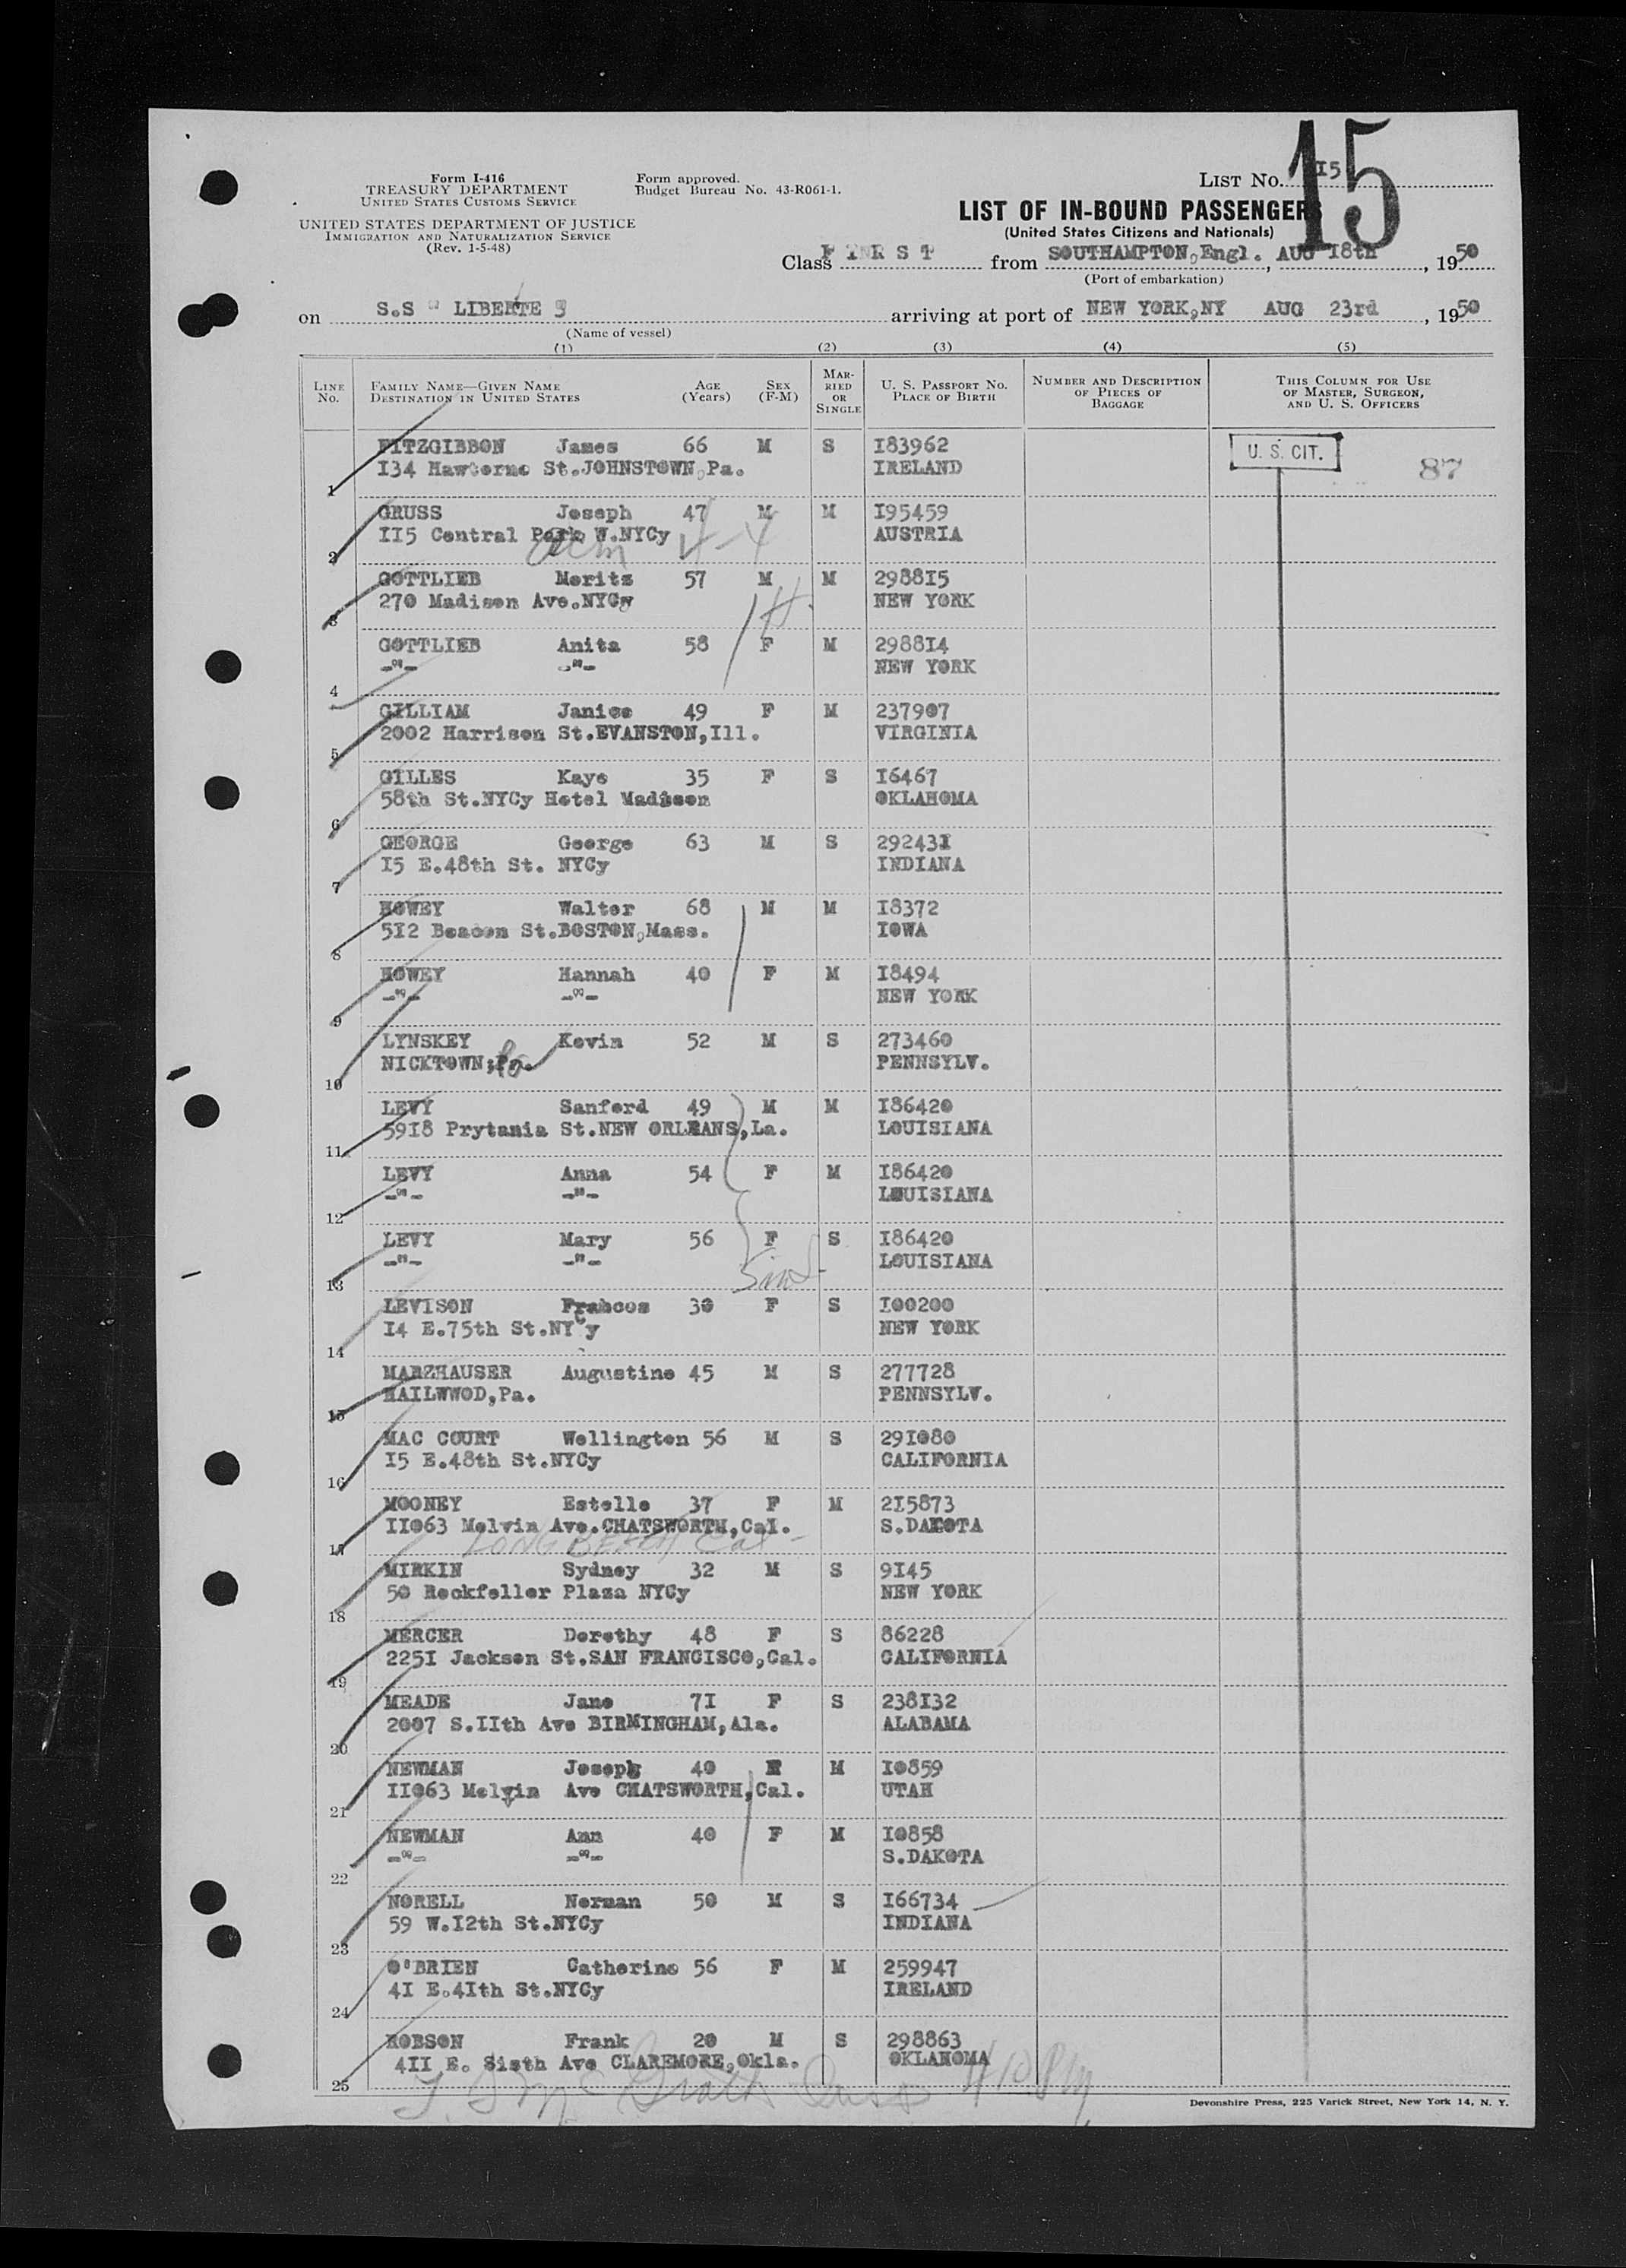 15
Form I-416
TREASURY DEPARTMENT
UNITED STATES CUSTOMS SERVICE
UNITED STATES DEPARTMENT OF JUSTICE
IMMIGRATION AND NATURALIZATION SERVICE
(Rev. 1-5-48)
Form approved.
Budget Bureau No. 43-R061-1.
LIST No. I5
LIST OF IN-BOUND PASSENGERS
(United States Citizens and Nationals)
Class F I R S T from SOUTHAMPTON,Engl., AUG I8th, 1950
(Port of embarkation)
on S.S " LIBERTE " arriving at port of NEW YORK,NY AUG 23rd, 1950
(Name of vessel)
(1) (2) (3) (4) (5)
LINE No. FAMILY NAME—GIVEN NAME DESTINATION IN UNITED STATES AGE (Years) SEX (F-M) MARRIED OR SINGLE U. S. PASSPORT NO. PLACE OF BIRTH NUMBER AND DESCRIPTION OF PIECES OF BAGGAGE THIS COLUMN FOR USE OF MASTER, SURGEON, AND U. S. OFFICERS
FITZGIBBON James 66 M S I83962 U. S. CIT. 87
1 I34 Hawtorne St.JOHNSTOWN,Pa. IRELAND
GRUSS Joseph 47 M M I95459
2 II5 Central Park W.NYCy AUSTRIA
GOTTLIEB Moritz 57 M M 2988I5
3 270 Madison Ave.NYCy NEW YORK
GOTTLIEB Anita 58 F M 2988I4
4 -"- -"- NEW YORK
GILLIAM Janice 49 F M 237907
5 2002 Harrison St.EVANSTON,Ill. VIRGINIA
GILLES Kaye 35 F S I6467
6 58th St.NYCy Hotel Madison OKLAHOMA
GEORGE George 63 M S 29243I
7 I5 E.48th St. NYCy INDIANA
HOWEY Walter 68 M M I8372
8 5I2 Beacon St.BOSTON,Mass. IOWA
HOWEY Hannah 40 F M I8494
9 -"- -"- NEW YORK
LYNSKEY Kevin 52 M S 273460
10 NICKTOWN;Pa. PENNSYLV.
LEVY Sanford 49 M M I86420
11 59I8 Prytania St.NEW ORLEANS,La. LOUISIANA
LEVY Anna 54 F M I86420
12 -"- -"- LOUISIANA
LEVY Mary 56 F S I86420
13 -"- -"- LOUISIANA
LEVISON Frances 30 F S I00200
14 I4 E.75th St.NYCy NEW YORK
MARZHAUSER Augustine 45 M S 277728
15 HAILWWOD,Pa. PENNSYLV.
MAC COURT Wellington 56 M S 29I080
16 I5 E.48th St.NYCy CALIFORNIA
MOONEY Estelle 37 F M 2I5873
17 II063 Melvin Ave.CHATSWORTH,Cal. S.DAKOTA
LONG BEACH Cal
MIRKIN Sydney 32 M S 9I45
18 50 Rockfeller Plaza NYCy NEW YORK
MERCER Dorothy 48 F S 86228
19 225I Jackson St.SAN FRANCISCO,Cal. CALIFORNIA
MEADE Jane 7I F S 238I32
20 2007 S.IIth Ave BIRMINGHAM,Ala. ALABAMA
NEWMAN Joseph 40 M M I0859
21 II063 Melvin Ave CHATSWORTH,Cal. UTAH
NEWMAN Ann 40 F M I0858
22 -"- -"- S.DAKOTA
NORELL Norman 50 M S I66734
23 59 W.I2th St.NYCy INDIANA
O'BRIEN Catherine 56 F M 259947
24 4I E.4Ith St.NYCy IRELAND
ROBSON Frank 20 M S 298863
25 4II E. Sixth Ave CLAREMORE,Okla. OKLAHOMA
Devonshire Press, 225 Varick Street, New York 14, N. Y.